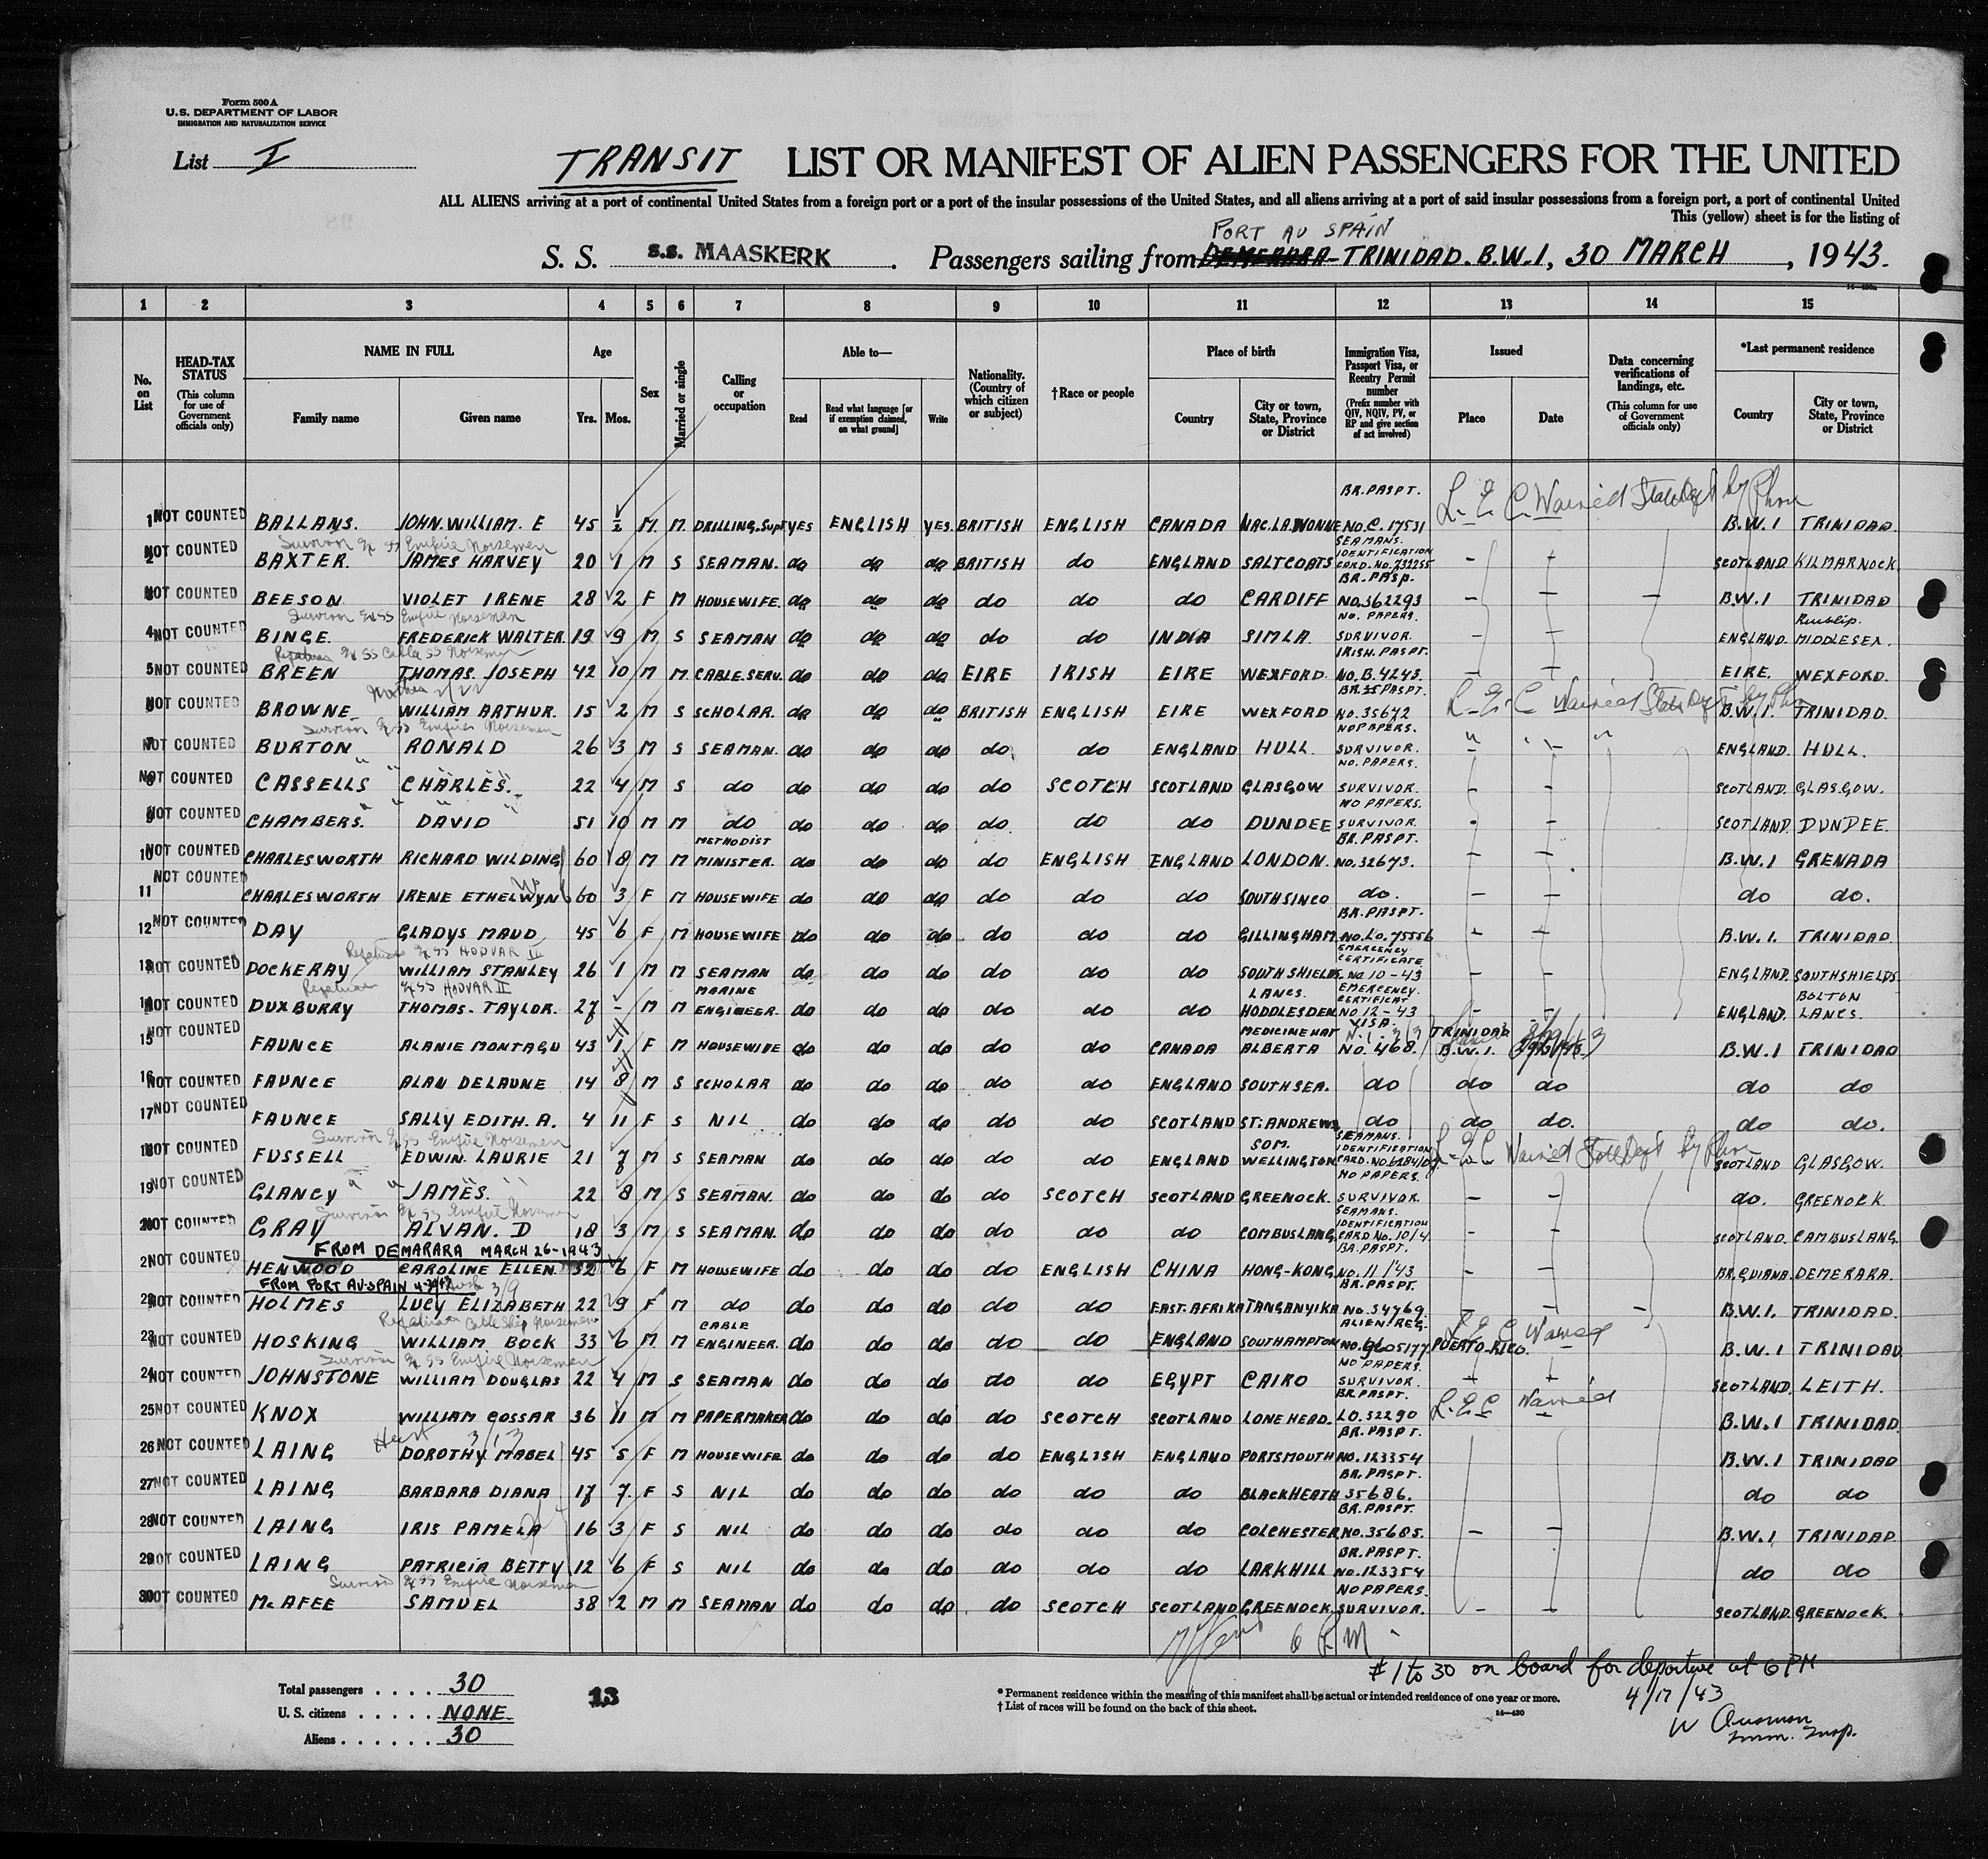 Form 500 A
U.S. DEPARTMENT OF LABOR
IMMIGRATION AND NATURALIZATION SERVICE
List I
TRANSIT LIST OR MANIFEST OF ALIEN PASSENGERS FOR THE UNITED
ALL ALIENS arriving at a port of continental United States from a foreign port or a port of the insular possessions of the United States, and all aliens arriving at a port of said insular possessions from a foreign port, a port of continental United
This (yellow) sheet is for the listing of
PORT AU SPAIN
S. S. S.S. MAASKERK. Passengers sailing from DEMERARA - TRINIDAD. B.W.I, 30 MARCH, 1943.
1 2 3 4 5 6 7 8 9 10 11 12 13 14 15
No. on List
HEAD-TAX STATUS (This column for use of Government officials only)
NAME IN FULL Family name Given name
Age Yrs. Mos.
Sex
Married or single
Calling or occupation
Able to— Read Read what language [or if exemption claimed, on what ground] Write
Nationality. (Country of which citizen or subject)
†Race or people
Place of birth Country City or town, State, Province or District
Immigration Visa, Passport Visa, or Reentry Permit number (Prefix number with QIV, NQIV, PV, or RP and give section of act involved)
Issued Place Date
Data concerning verifications of landings, etc. (This column for use of Government officials only)
*Last permanent residence Country City or town, State, Province or District
1 NOT COUNTED BALLANS. JOHN. WILLIAM. E 45 M. M. DRILLING. Supt yes ENGLISH yes. BRITISH ENGLISH CANADA MAC. LA. WONNE BR. PASPT. No. C. 17531 L. E. C. Waived State Dept by Phone B.W.I TRINIDAD.
Survivor Ex SS Empire Norsemen
2 NOT COUNTED BAXTER. JAMES HARVEY 20 1 M S SEAMAN. do do do BRITISH do ENGLAND SALTCOATS SEAMANS. IDENTIFICATION CARD. No. 732255 - - SCOTLAND KILMARNOCK
3 NOT COUNTED BEESON VIOLET IRENE 28 2 F M HOUSEWIFE. do do do do do do CARDIFF BR. PASP. No. 362293 - - - B.W.I TRINIDAD
Survivor Ex SS Empire Norseman
4 NOT COUNTED BINGE. FREDERICK WALTER. 19 9 M. S SEAMAN do do do do do INDIA SIMLA. NO. PAPERS. SURVIVOR. - - ENGLAND. Ruislip. MIDDLESEX.
Ex SS Cable SS Norseman
5 NOT COUNTED BREEN THOMAS. JOSEPH 42 10 M M. CABLE. SERV. do do do EIRE IRISH EIRE WEXFORD. IRISH. PASPT. No. B. 4243. - - EIRE. WEXFORD.
6 NOT COUNTED BROWNE WILLIAM ARTHUR. 15 2 M S SCHOLAR. do do do BRITISH ENGLISH EIRE WEXFORD BR. PASPT. No. 35672 L. E. C Waived State Dept by Phone B.W.I. TRINIDAD.
Survivor Ex SS Empire Norsemen
7 NOT COUNTED BURTON RONALD 26 3 M S SEAMAN. do do do do do ENGLAND HULL NO PAPERS. SURVIVOR. ENGLAND. HULL.
8 NOT COUNTED CASSELLS CHARLES. 22 4 M S do do do do do SCOTCH SCOTLAND GLASGOW NO. PAPERS. SURVIVOR. - - SCOTLAND. GLASGOW.
9 NOT COUNTED CHAMBERS. DAVID 51 10 M M do do do do do. do do DUNDEE NO PAPERS. SURVIVOR. - SCOTLAND DUNDEE.
10 NOT COUNTED CHARLESWORTH RICHARD WILDING 60 8 M M METHODIST MINISTER. do do do do ENGLISH ENGLAND LONDON. BR. PASPT. No. 32673. - - B.W.I GRENADA
11 NOT COUNTED CHARLESWORTH IRENE ETHELWYN 60 3 F M HOUSEWIFE do do do do do do SOUTHSINCO do. - - do do.
12 NOT COUNTED DAY GLADYS MAUD 45 6 F M HOUSEWIFE do do do do do do GILLINGHAM. BR. PASPT. No. LO. 75556 - - B.W.I. TRINIDAD
Ex SS HODVAR II
13 NOT COUNTED DOCKERAY WILLIAM STANLEY 26 1 M M SEAMAN do do do do do do SOUTH SHIELDS. EMERGENCY CERTIFICATE No 10-43 - - ENGLAND. SOUTHSHIELDS.
Ex SS HODVAR II
14 NOT COUNTED DUXBURRY THOMAS. TAYLOR. 27 - M M MARINE ENGINEER. do do do do do do LANCS. HODDLESDEN EMERGENCY. CERTIFICAT No 12-43 - - ENGLAND. BOLTON LANCS.
15 NOT COUNTED FAUNCE ALANIE MONTAGU 43 1 F M HOUSEWIFE do do do do do CANADA MEDICINE HAT ALBERTA VISA. No. 468. TRINIDAD B.W.I. B.W.I TRINIDAD
16 NOT COUNTED FAUNCE ALAN DELAUNE 14 8 M S SCHOLAR do do do do do ENGLAND SOUTHSEA. do do do do do
17 NOT COUNTED FAUNCE SALLY EDITH. A. 4 11 F S NIL do do do do do SCOTLAND ST. ANDREWS do do do. do do.
Survivor Ex SS Empire Norsemen
18 NOT COUNTED FUSSELL EDWIN. LAURIE 21 7 M S SEAMAN do do do do do ENGLAND SOM. WELLINGTON SEAMANS. IDENTIFICATION L. E. C Waived State Dept by Phone SCOTLAND GLASGOW.
19 NOT COUNTED GLANCY JAMES. 22 8 M S SEAMAN. do do do do SCOTCH SCOTLAND GREENOCK. NO PAPERS. SURVIVOR. - - do. GREENOCK.
Survivor Ex SS Empire Norseman
20 NOT COUNTED GRAY ALVAN. D 18 3 M S SEAMAN. do do do do do do COMBUSLANG SEAMANS. IDENTIFICATION CARD No. 10/4. - - SCOTLAND. CAMBUSLANG.
FROM DEMARARA MARCH 26-1943
21 NOT COUNTED HENWOOD CAROLINE ELLEN 32 6 F M HOUSEWIFE do do do do ENGLISH CHINA HONG-KONG BR. PASPT. No. 11/43 - - BR. GUIANA DEMERARA.
FROM PORT AU SPAIN
22 NOT COUNTED HOLMES LUCY ELIZABETH 22 9 F M do do do do do do EAST. AFRIKA TANGANYIKA BR. PASPT. No. 34769. - - - B.W.I. TRINIDAD.
Cable Ship Norseman
23 NOT COUNTED HOSKING WILLIAM BOCK 33 6 M M CABLE ENGINEER. do do do do do ENGLAND SOUTHAMPTON ALIEN REG. No. 9605177 PUERTO-RICO. L. E C Waived B.W.I TRINIDAD
Survivor Ex SS Empire Norsemen
24 NOT COUNTED JOHNSTONE WILLIAM DOUGLAS 22 4 M S SEAMAN do do do do do EGYPT CAIRO NO PAPERS. SURVIVOR. SCOTLAND. LEITH.
25 NOT COUNTED KNOX WILLIAM GOSSAR 36 11 M M PAPERMAKER do do do do SCOTCH SCOTLAND LONEHEAD. BR. PASPT. LO. 32290 L. E C Waived B.W.I TRINIDAD
26 NOT COUNTED LAING DOROTHY MABEL 45 5 F M HOUSEWIFE do do do do ENGLISH ENGLAND PORTSMOUTH BR. PASPT. No. 123354 B.W.I TRINIDAD
27 NOT COUNTED LAING BARBARA DIANA 17 7. F S NIL do do do do do do BLACKHEATH BR. PASPT. 35686. do do
28 NOT COUNTED LAING IRIS PAMELA 16 3 F S NIL do do do do do do COLCHESTER BR. PASPT. No. 35685. - - B.W.I. TRINIDAD
29 NOT COUNTED LAING PATRICIA BETTY 12 6 F S NIL do do do do do do LARKHILL BR. PASPT. No. 123354 do do
Survivor Ex SS Empire Norseman
30 NOT COUNTED McAFEE SAMUEL 38 2 M M SEAMAN do do do do SCOTCH SCOTLAND GREENOCK. NO PAPERS. SURVIVOR. - - SCOTLAND. GREENOCK.
6 P M
# 1 to 30 on board for departure at 6 PM
4/17/43
Imm. Insp.
Total passengers . . . . 30
U. S. citizens . . . . . NONE.
Aliens . . . . . . 30
13
* Permanent residence within the meaning of this manifest shall be actual or intended residence of one year or more.
† List of races will be found on the back of this sheet.
14-430